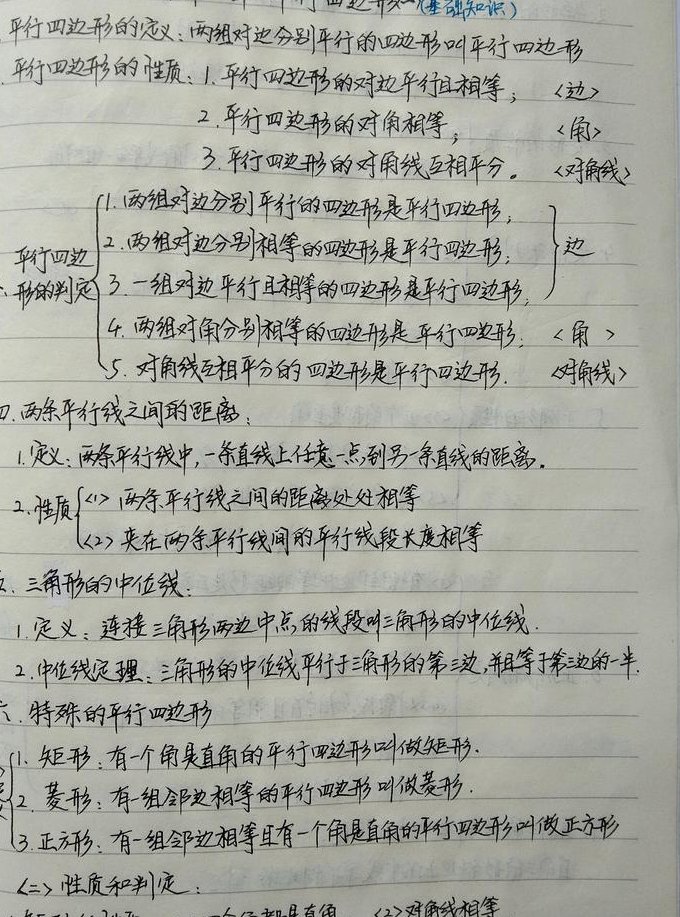 平行四边形 (基础知识)
平行四边形的定义：两组对边分别平行的四边形叫平行四边形
平行四边形的性质：1. 平行四边形的对边平行且相等； <边>
2. 平行四边形的对角相等； <角>
3. 平行四边形的对角线互相平分。 <对角线>
平行四边形的判定
1. 两组对边分别平行的四边形是平行四边形；
2. 两组对边分别相等的四边形是平行四边形；
3. 一组对边平行且相等的四边形是平行四边形；
边
4. 两组对角分别相等的四边形是平行四边形； <角>
5. 对角线互相平分的四边形是平行四边形. <对角线>
四.两条平行线之间的距离：
1.定义：两条平行线中，一条直线上任意一点到另一条直线的距离。
2.性质
<1> 两条平行线之间的距离处处相等
<2> 夹在两条平行线间的平行线段长度相等
五. 三角形的中位线：
1.定义：连接三角形两边中点的线段叫三角形的中位线.
2.中位线定理：三角形的中位线平行于三角形的第三边,并且等于第三边的一半.
六. 特殊的平行四边形
1. 矩形：有一个角是直角的平行四边形叫做矩形.
2. 菱形：有一组邻边相等的平行四边形叫做菱形.
3.正方形：有一组邻边相等且有一个角是直角的平行四边形叫做正方形
<二> 性质和判定：
个角都是直角 <2>对角线相等